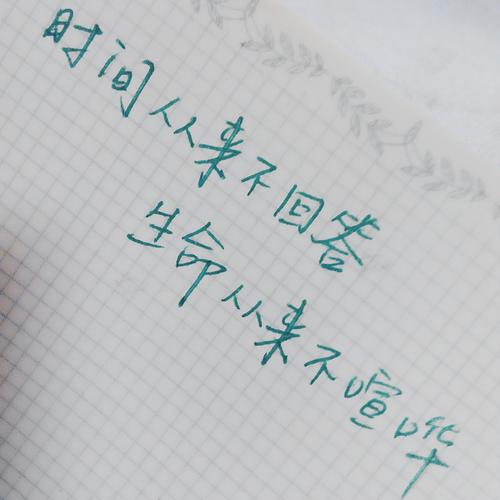 时间从来不回答
生命从来不喧哗